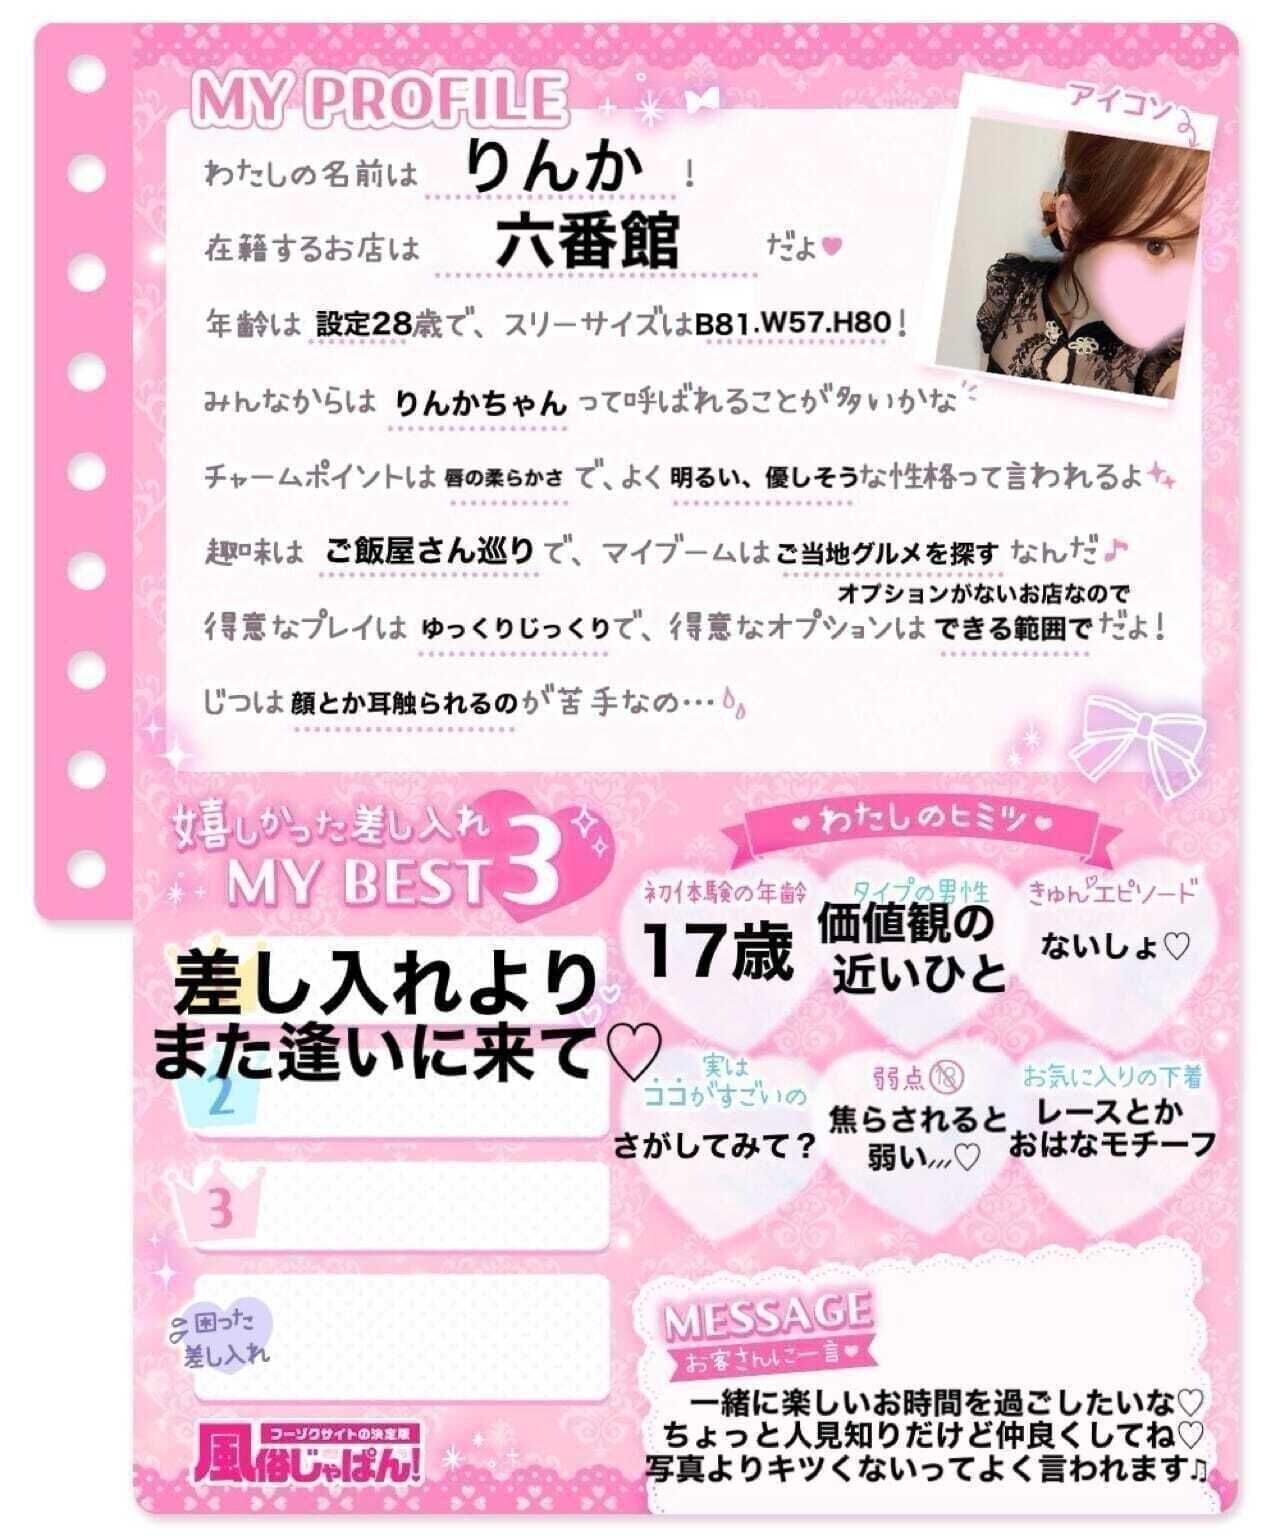 MY PROFILE
アイコン
わたしの名前は りんか !
在籍するお店は 六番館 だよ♥
年齢は 設定28歳で、スリーサイズはB81.W57.H80!
みんなからは りんかちゃん って呼ばれることが多いかな
チャームポイントは 唇の柔らかさ で、よく 明るい、優しそうな性格って言われるよ
趣味は ご飯屋さん巡り で、マイブームは ご当地グルメを探す なんだ♪
オプションがないお店なので
得意なプレイは ゆっくりじっくりで、得意なオプションは できる範囲で だよ!
じつは 顔とか耳触られるのが苦手なの…
嬉しかった差し入れ
MY BEST 3
差し入れより
また逢いに来て♡
2
3
困った
差し入れ
フーゾクサイトの決定版
風俗じゃぱん!
♥わたしのヒミツ♥
初体験の年齢
17歳
タイプの男性
価値観の
近いひと
きゅん♡エピソード
ないしょ♡
実は
ココがすごいの
さがしてみて?
弱点🔞
焦らされると
弱い///♡
お気に入りの下着
レースとか
おはなモチーフ
MESSAGE
お客さんに一言♥
一緒に楽しいお時間を過ごしたいな♡
ちょっと人見知りだけど仲良くしてね♡
写真よりキツくないってよく言われます♫